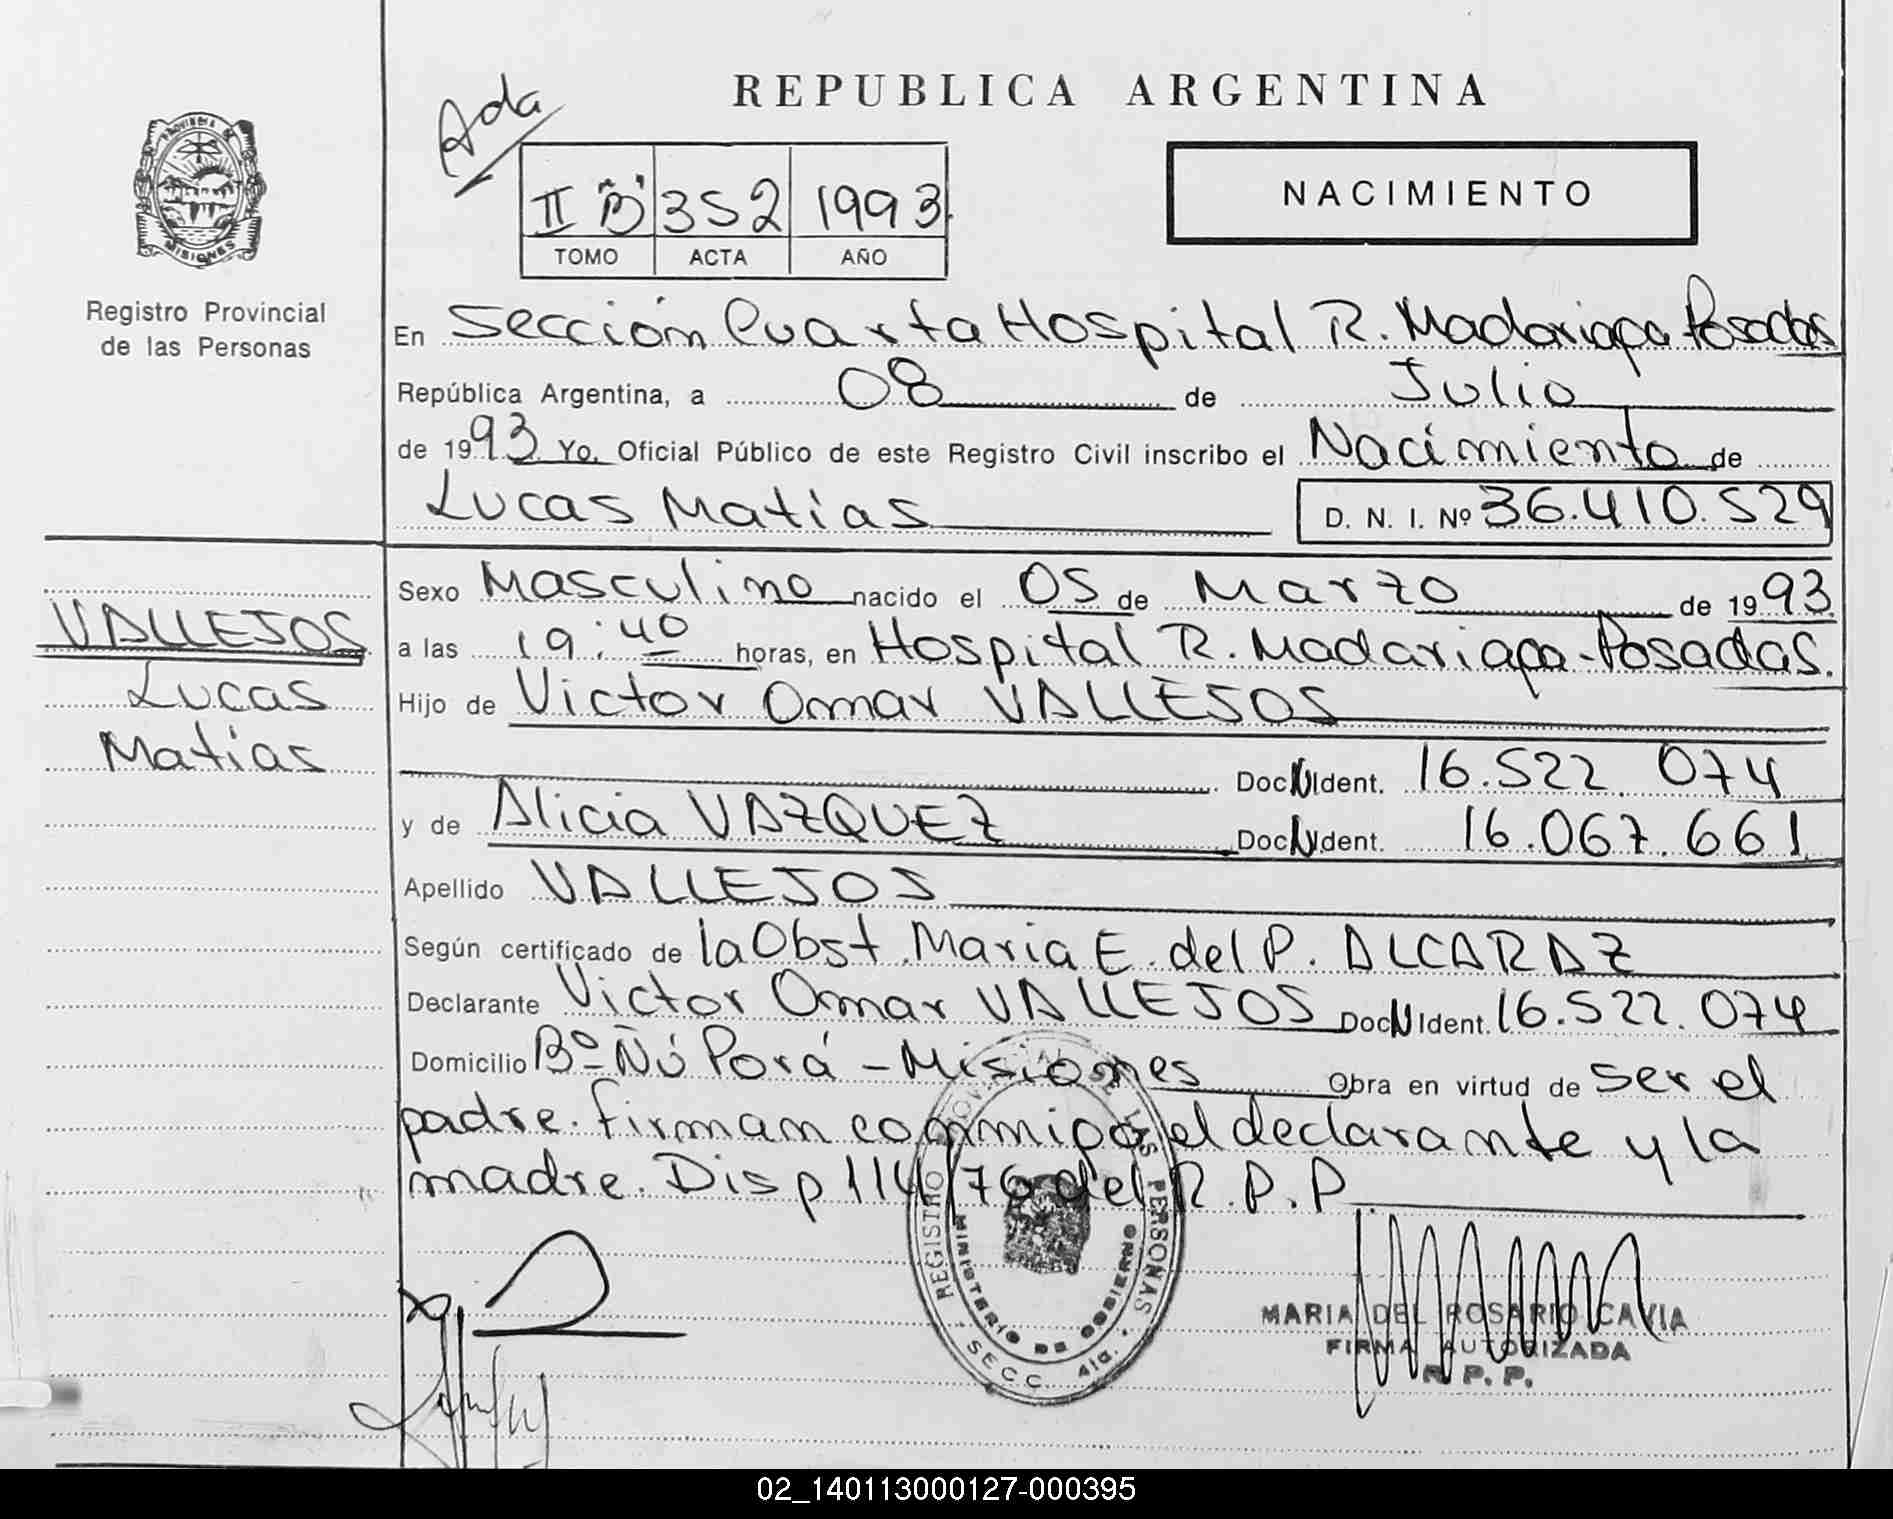 REPUBLICA ARGENTINA
Ada
II "B" 352 1993
TOMO ACTA AÑO
NACIMIENTO
PROVINCIA DE
MISIONES
Registro Provincial
de las Personas
En Sección Cuarta Hospital R. Madariaga Posadas
República Argentina, a 08 de Julio
de 1993 Yo, Oficial Público de este Registro Civil inscribo el Nacimiento de
Lucas Matías D. N. I. Nº 36.410.529
VALLEJOS
Lucas
Matías
Sexo Masculino nacido el 05 de Marzo de 1993
a las 19:40 horas, en Hospital R. Madariaga - Posadas.
Hijo de Victor Omar VALLEJOS
Doc N Ident. 16.522 074
y de Alicia VAZQUEZ Doc N Ident. 16.067.661
Apellido VALLEJOS
Según certificado de la Obst. Maria E. del P. ALCARAZ
Declarante Victor Omar VALLEJOS Doc N Ident. 16.522.074
Domicilio Bº Ñú Porá - Misiones Obra en virtud de ser el
padre. firman conmigo el declarante y la
madre. Disp 114/76 del R.P.P
REGISTRO PROVINCIAL DE LAS PERSONAS
MINISTERIO DE GOBIERNO
SECC. 4ta.
MARIA DEL ROSARIO CAVIA
FIRMA AUTORIZADA
R. P. P.
02_140113000127-000395